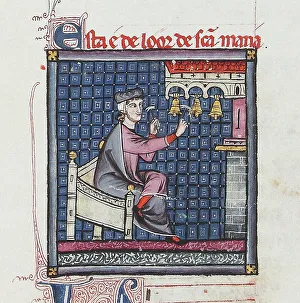 Esta e de loor de sca maria